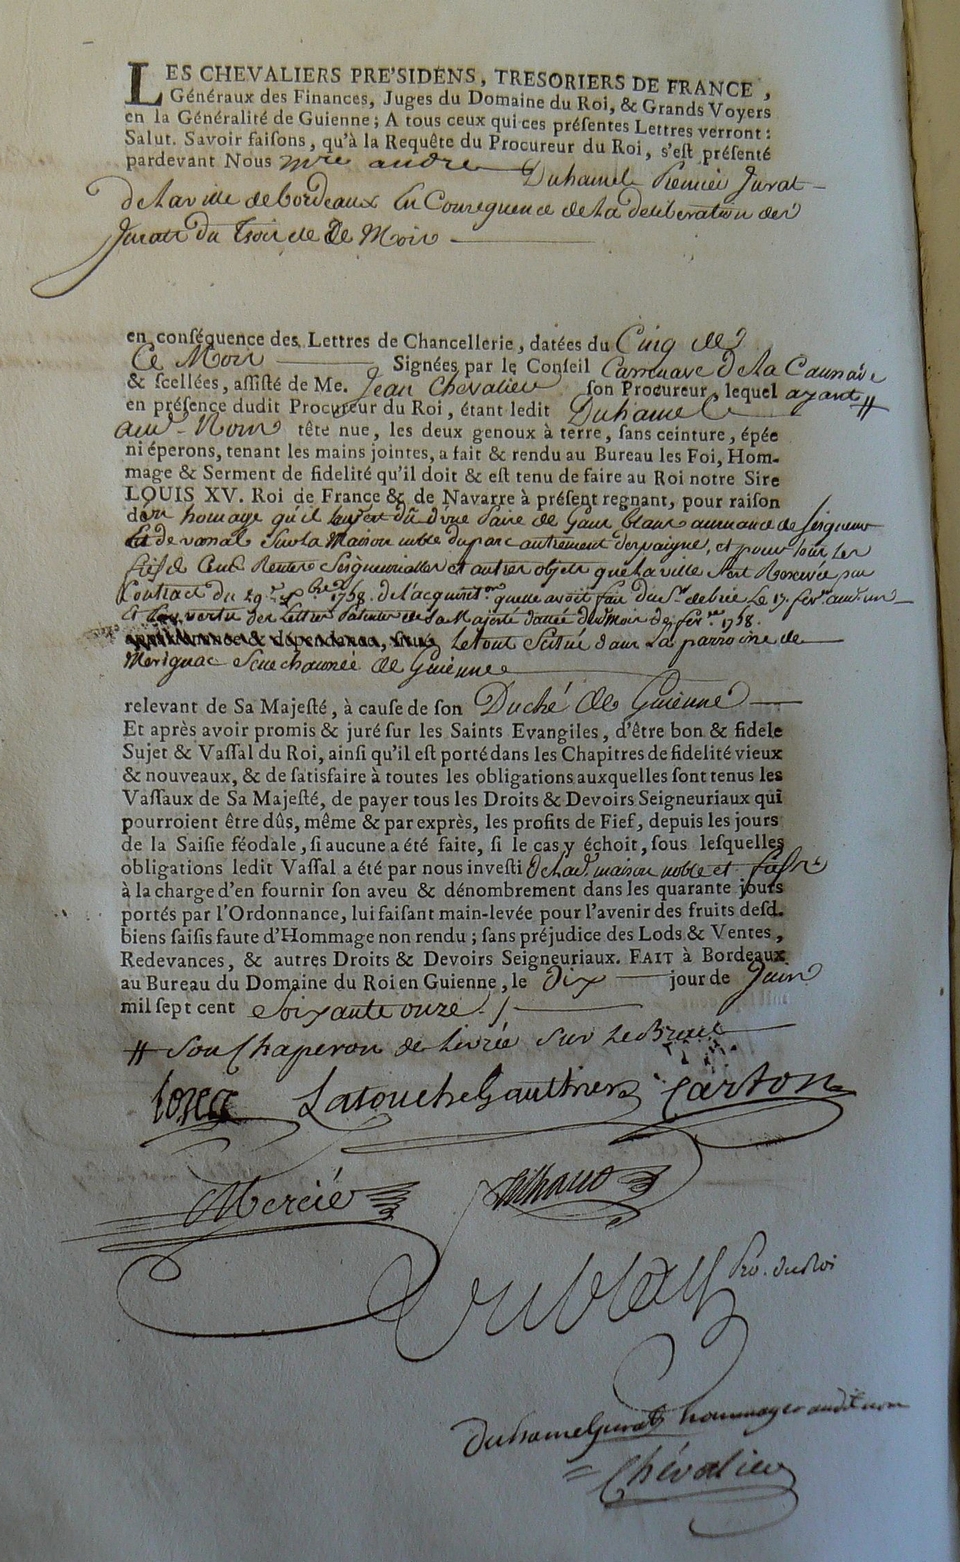 LES CHEVALIERS PRE'SIDENS, TRESORIERS DE FRANCE,
Généraux des Finances, Juges du Domaine du Roi, & Grands Voyers
en la Généralité de Guienne; A tous ceux qui ces préſentes Lettres verront:
Salut. Savoir faiſons, qu'à la Requête du Procureur du Roi, s'eſt préſenté
pardevant Nous andre Duhamel Premier Jurat
de la ville de bordeaux En Consequence de la deliberation des
Jurats du trois de Ce Mois
en conſéquence des Lettres de Chancellerie, datées du Cinq de
Ce Mois Signées par le Conſeil
& ſcellées, aſſiſté de Me. Jean Chevalier ſon Procureur, lequel ayant #
en préſence dudit Procureur du Roi, étant ledit Duhamel
aud. Nom tête nue, les deux genoux à terre, ſans ceinture, épée
ni éperons, tenant les mains jointes, a fait & rendu au Bureau les Foi, Hom-
mage & Serment de fidelité qu'il doit & eſt tenu de faire au Roi notre Sire
LOUIS XV. Roi de France & de Navarre à préſent regnant, pour raiſon
homage qu'il d'une Paire de Gans blancs de Seigneur
sur la Maison noble du parc autrement d'espaigne, et pour tous les
Rentes Seigneurialles et autres objets que la ville s'est Reservée par
Contract du 29 1758. de l'acquisit. quelle avoit fait du Sr. de brie Le 17 fevr.
vertu des Lettres Patentes de Sa Majesté datée du Mois de fevr. 1758.
appartenances & dépendances, ſitué Le tout Scitué dans La parroisse de
Merignac Senechaussée de Guienne
relevant de Sa Majeſté, à cauſe de ſon Duché de Guienne
Et après avoir promis & juré ſur les Saints Evangiles, d'être bon & fidele
Sujet & Vaſſal du Roi, ainſi qu'il eſt porté dans les Chapitres de fidelité vieux
& nouveaux, & de ſatisfaire à toutes les obligations auxquelles ſont tenus les
Vaſſaux de Sa Majeſté, de payer tous les Droits & Devoirs Seigneuriaux qui
pourroient être dûs, même & par exprès, les profits de Fief, depuis les jours
de la Saiſie féodale, ſi aucune a été faite, ſi le cas y échoit, ſous leſquelles
obligations ledit Vaſſal a été par nous inveſti de lad. maison noble et
à la charge d'en fournir ſon aveu & dénombrement dans les quarante jours
portés par l'Ordonnance, lui faiſant main-levée pour l'avenir des fruits deſd.
biens ſaiſis faute d'Hommage non rendu; ſans préjudice des Lods & Ventes,
Redevances, & autres Droits & Devoirs Seigneuriaux. FAIT à Bordeaux
au Bureau du Domaine du Roi en Guienne, le dix jour de Juin
mil ſept cent Soixante onze
# Son Chaperon de livrée Sur Le Bras
Latouche Gauthier Carton
Mercié
Pro. du Roi
Duhamel Jurat hommager audit nom
Chévalier